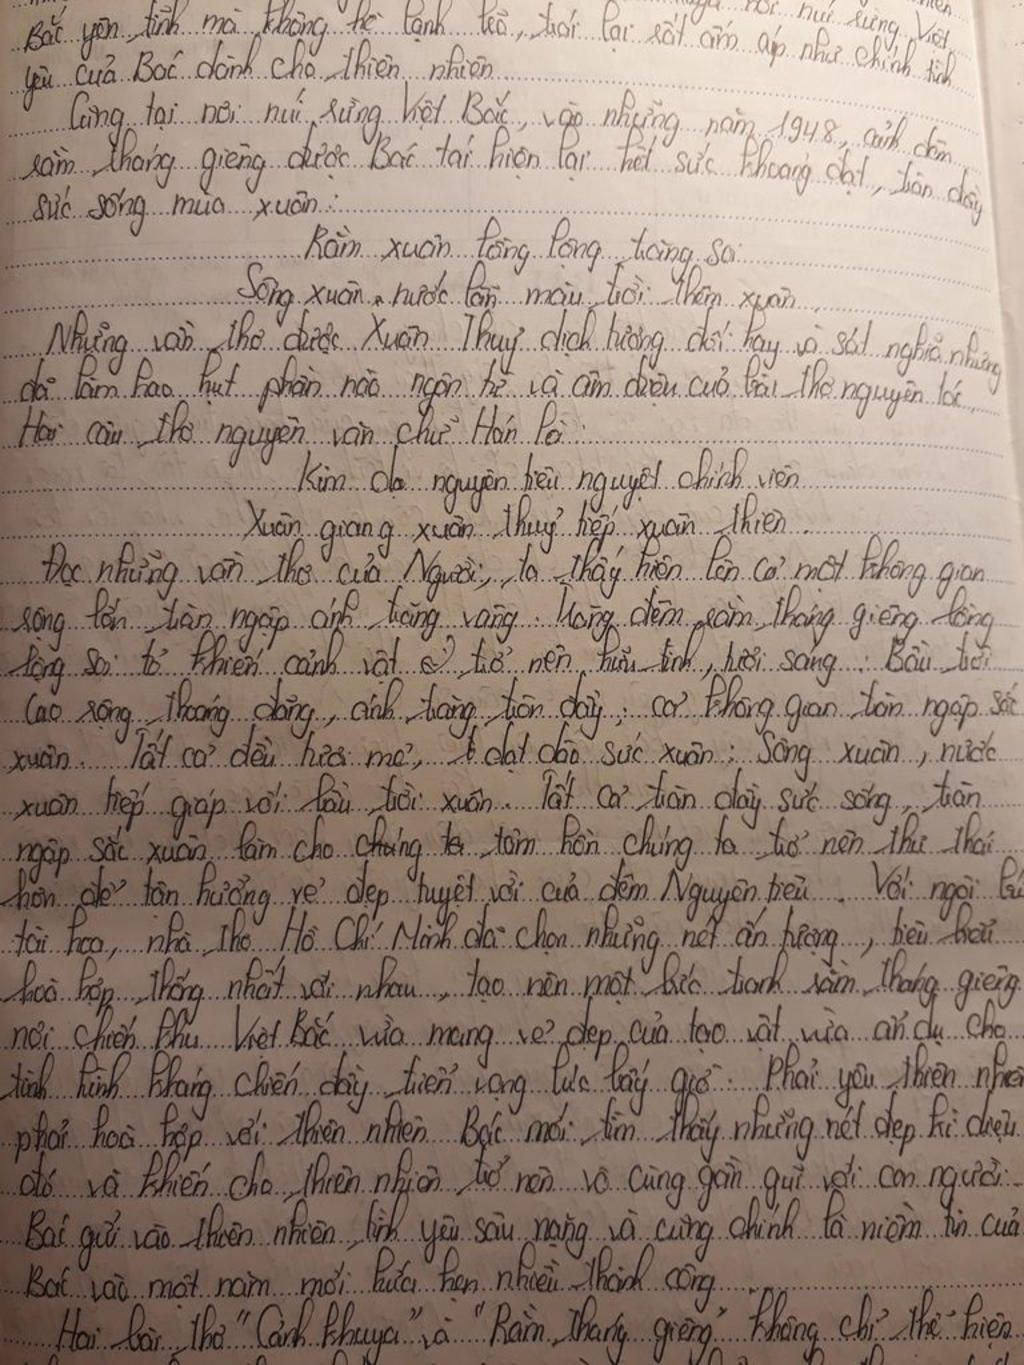 Bắc yên tĩnh mà không hề lạnh lẽo, trái lại rất ấm áp như chính tình
yêu của Bác dành cho thiên nhiên
Cũng tại nơi núi rừng Việt Bắc, vào những năm 1948, cảnh đêm
rằm tháng giêng được Bác tái hiện lại hết sức khoáng đạt, tràn đầy
sức sống mùa xuân:
Rằm xuân lồng lộng trăng soi
Sông xuân nước lẫn màu trời thêm xuân
Những vần thơ được Xuân Thuỷ dịch tương đối hay và sát nghĩa nhưng
đã làm hao hụt phần nào ngôn từ và âm điệu của bài thơ nguyên tác.
Hai câu thơ nguyên văn chữ Hán là:
Kim dạ nguyên tiêu nguyệt chính viên
Xuân giang xuân thuỷ tiếp xuân thiên.
Đọc những vần thơ của Người, ta thấy hiện lên cả một không gian
rộng lớn tràn ngập ánh trăng vàng. Trăng đêm rằm tháng giêng lồng
lộng soi tỏ khiến cảnh vật trở nên hữu tình, tươi sáng. Bầu trời
cao rộng, thoáng đãng, ánh trăng tròn đầy, cả không gian tràn ngập sắc
xuân. Tất cả đều tươi mới, dạt dào sức xuân: Sông xuân, nước
xuân tiếp giáp với bầu trời xuân. Tất cả tràn đầy sức sống, tràn
ngập sắc xuân làm cho tâm hồn chúng ta trở nên thư thái
hơn để tận hưởng vẻ đẹp tuyệt vời của đêm Nguyên tiêu. Với ngòi bút
tài hoa, nhà thơ Hồ Chí Minh đã chọn những nét ấn tượng, tiêu biểu
hoà hợp, thống nhất với nhau, tạo nên một bức tranh rằm tháng giêng
nơi chiến khu Việt Bắc vừa mang vẻ đẹp của tạo vật vừa ẩn dụ cho
tình hình kháng chiến đầy triển vọng lúc bấy giờ. Phải yêu thiên nhiên
phải hoà hợp với thiên nhiên Bác mới tìm thấy những nét đẹp kì diệu
đó và khiến cho thiên nhiên trở nên vô cùng gần gũi với con người.
Bác gửi vào thiên nhiên tình yêu sâu nặng và cũng chính là niềm tin của
Bác vào một năm mới hứa hẹn nhiều thành công
Hai bài thơ "Cảnh khuya" và "Rằm tháng giêng" không chỉ thể hiện